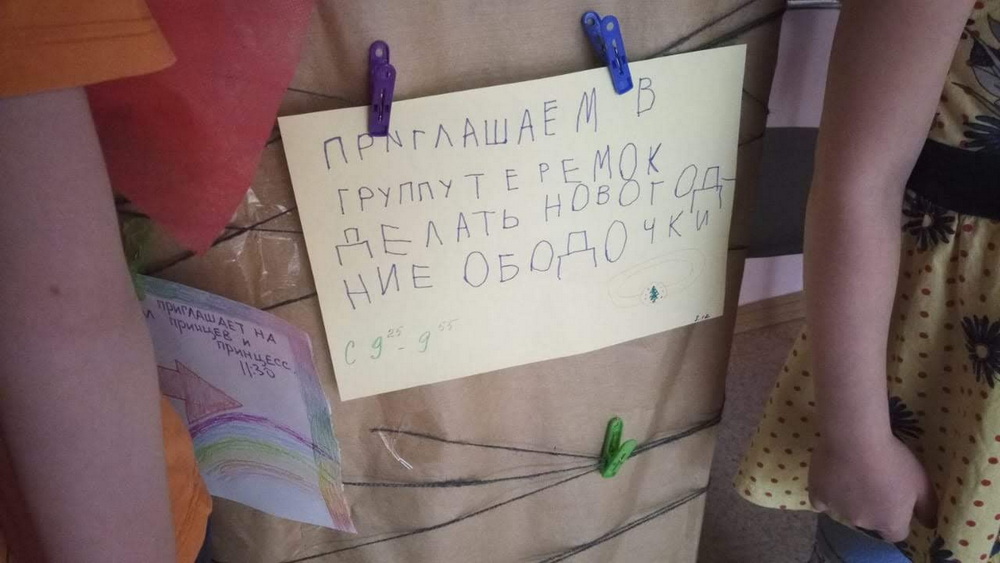 ПРИГЛАШАЕМ В
ГРУППУ ТЕРЕМОК
ДЕЛАТЬ НОВОГОД-
НИЕ ОБОДОЧКИ
С 9 25 - 9 55
ПРИГЛАШАЕТ НА
ПРИНЦЕВ И
ПРИНЦЕСС
11:30